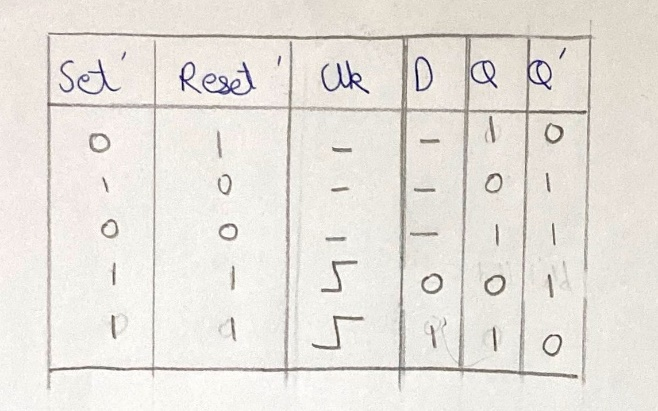 Set' Reset' Clk D Q Q'
0 1 - - 1 0
1 0 - - 0 1
0 0 - - 1 1
1 1 0 0 1
1 1 1 1 0